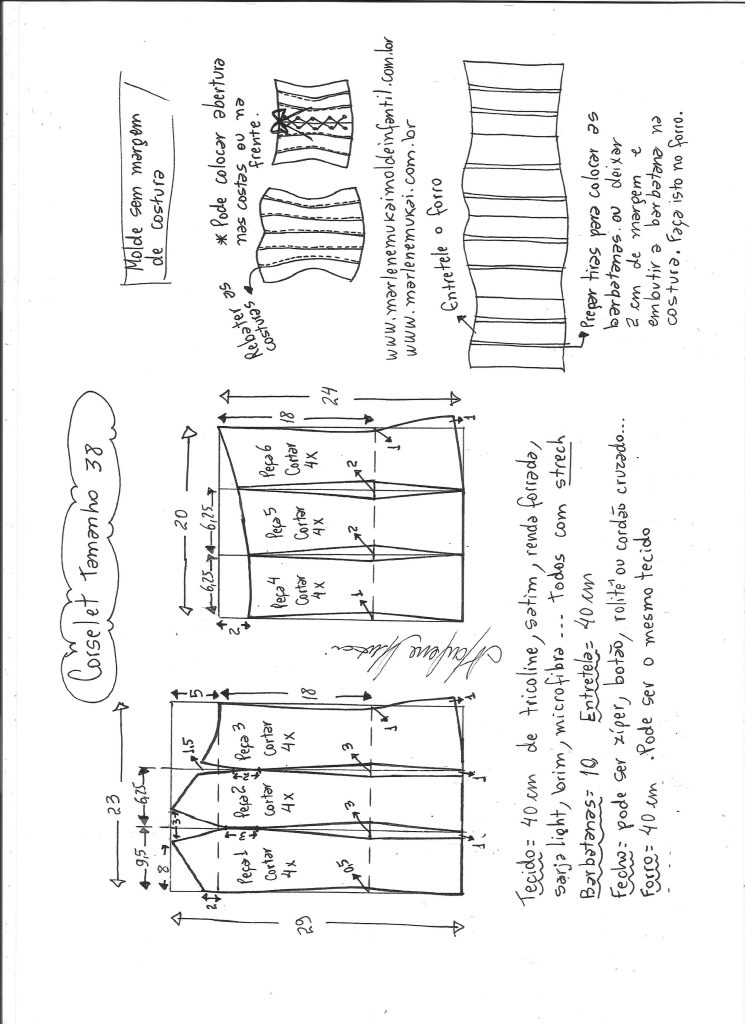 Corselet Tamanho 38
Molde sem margem
de costura
23
9,5
6,25
8
3
1,5
5
2
29
18
Peça 1
Cortar
4x
Peça 2
Cortar
4x
Peça 3
Cortar
4x
3
2
0,5
3
3
1
1
1
1
20
6,25
6,25
2
18
24
Peça 4
Cortar
4x
Peça 5
Cortar
4x
Peça 6
Cortar
4x
1
2
2
1
1
* Pode colocar abertura
nas costas ou na
frente.
Rebater as
costuras
www.marlenemukaimoldeinfantil.com.br
www.marlenemukai.com.br
Entretele o forro
Prepar tiras para colocar as
barbatanas ou deixar
2 cm de margem e
embutir a barbatana na
costura. Faça isto no forro.
Tecido = 40 cm de tricoline, satim, renda forrada,
sarja light, brim, microfibra... Todos com strech
Barbatanas = 10 Entretela = 40 cm
Fecho = pode ser zíper, botão, rolitê ou cordão cruzado...
Forro = 40 cm. Pode ser o mesmo tecido